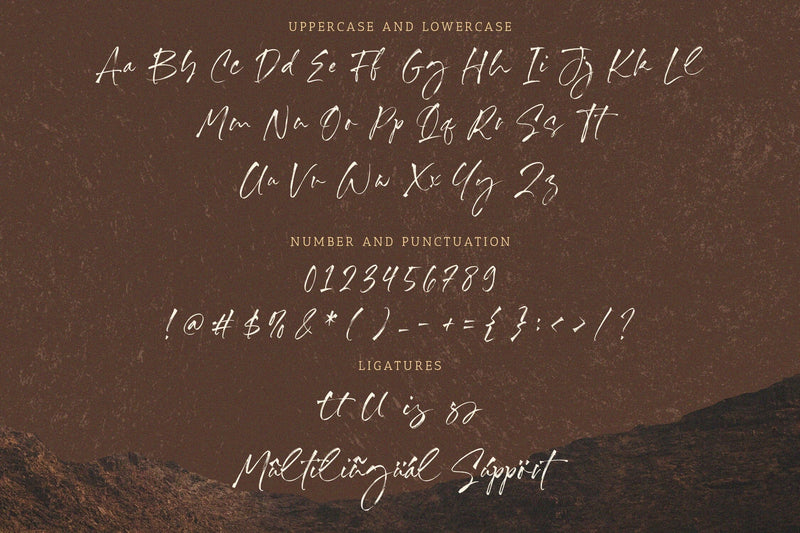 UPPERCASE AND LOWERCASE
Aa Bb Cc Dd Ee Ff Gg Hh Ii Jj Kk Ll
Mm Nn Oo Pp Qq Rr Ss Tt
Uu Vv Ww Xx Yy Zz
NUMBER AND PUNCTUATION
0123456789
!@#$%&*()_-+={}:<>/?
LIGATURES
tt ll is ss
Mûltiliñgüál Súppört